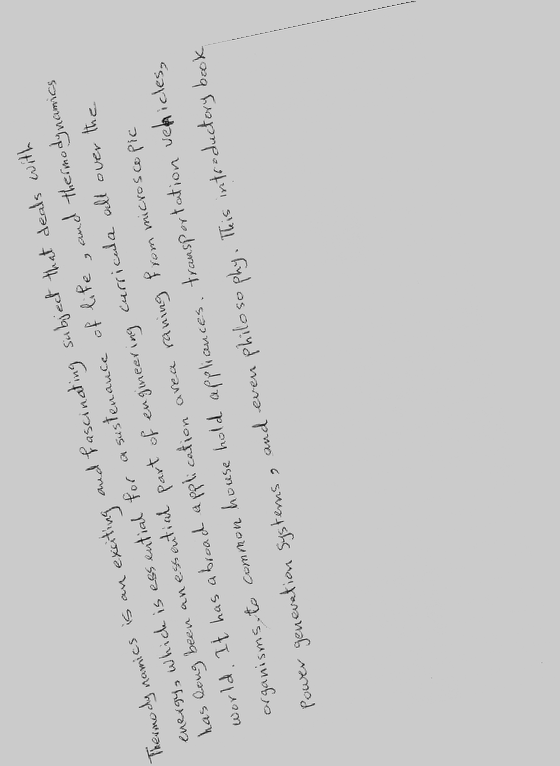 Thermodynamics is an exciting and fascinating subject that deals with
energy, which is essential for a sustenance of life, and thermodynamics
has long been an essential part of engineering curricula all over the
world. It has abroad application area raning from microscopic
organisms, to common house hold appliances. transportation vehicles,
Power generation systems, and even philosophy. This introductory book